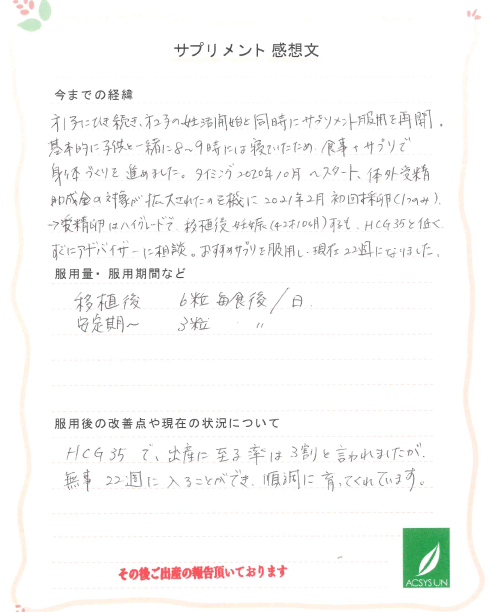 サプリメント 感想文
今までの経緯
オ1子にひき続き、オ2子の妊活開始と同時にサプリメント服用を再開。
基本的に子供と一緒に8〜9時には寝ていたため、食事+サプリで
身体づくりを進めました。タイミング2020年10月〜スタート、体外受精
助成金の対象が拡大されたのを機に2021年2月初回採卵(1つのみ)。
→受精卵はハイグレードで、移植後妊娠(42才10ヶ月)するも、HCG35と低く
すぐにアドバイザーに相談。お勧めサプリを服用し、現在22週になりました。
服用量・服用期間など
移植後 6粒 毎食後/日.
安定期〜 3粒 〃
服用後の改善点や現在の状況について
HCG35で、出産に至る率は3割と言われましたが、
無事22週に入ることができ、順調に育ってくれています。
その後ご出産の報告頂いております
ACSYS UN